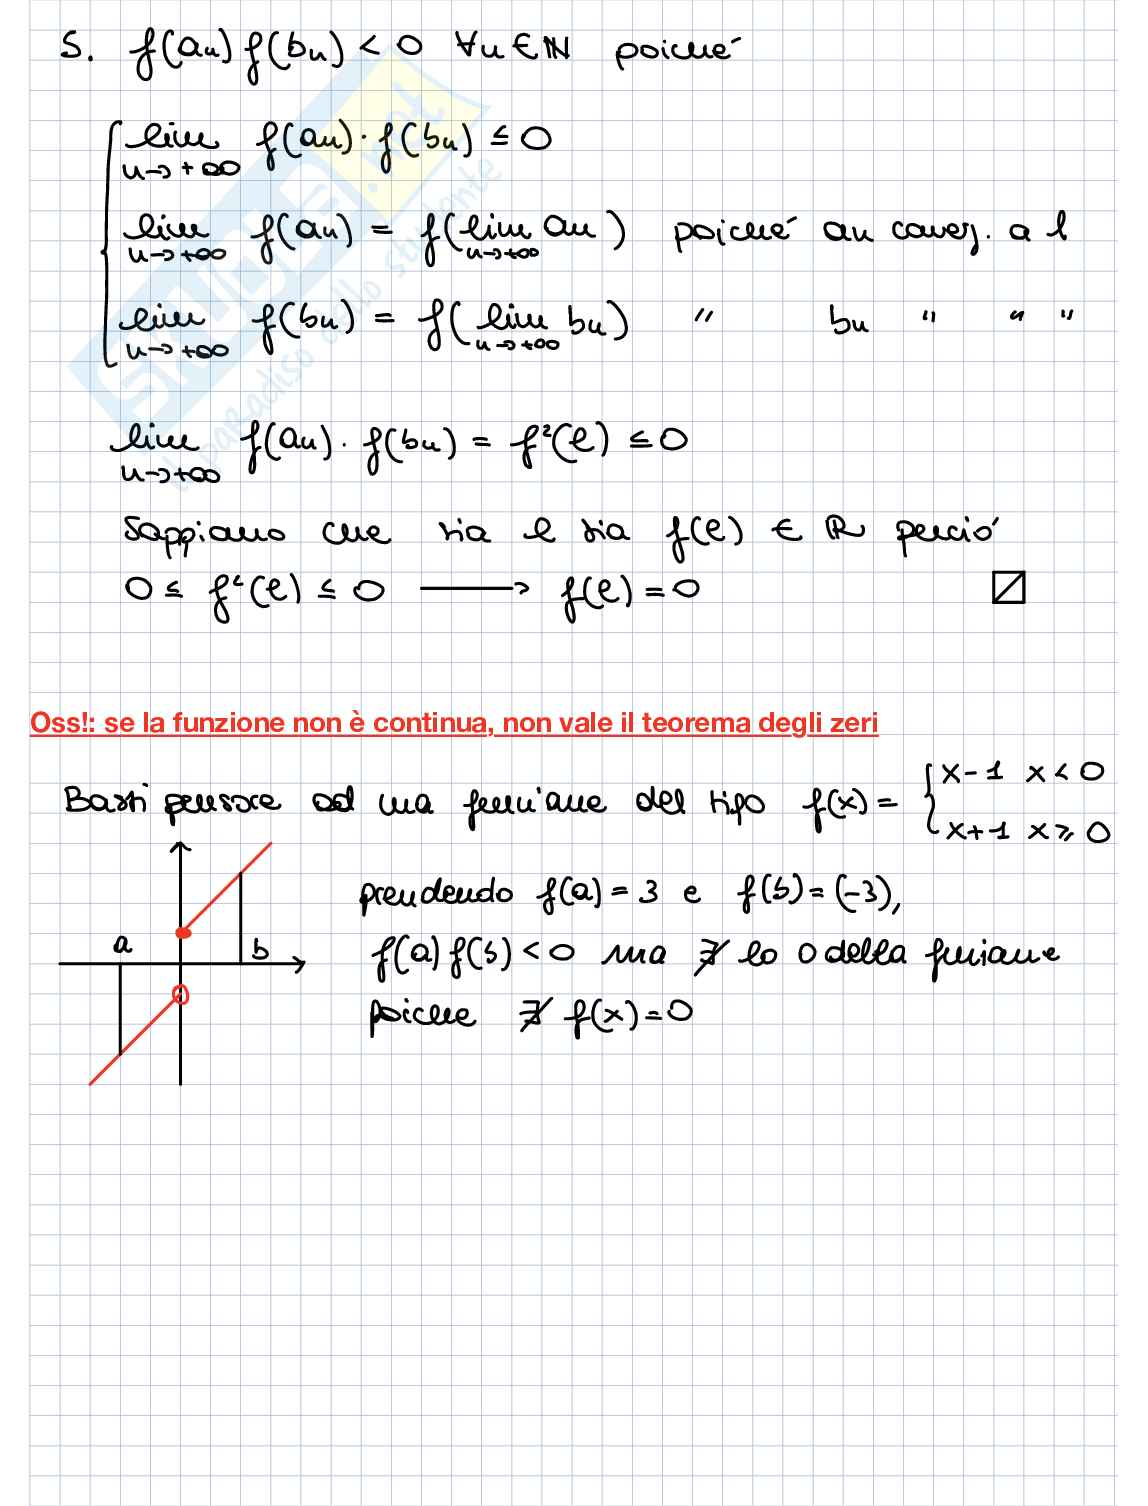 5. f(an) f(bn) < 0 ∀n ∈ ℕ poiché
lim n→+∞ f(an) · f(bn) ≤ 0
lim n→+∞ f(an) = f(lim n→+∞ an) poiché an converg. a l
lim n→+∞ f(bn) = f(lim n→+∞ bn) " bn " " "
lim n→+∞ f(an) · f(bn) = f²(l) ≤ 0
Sappiamo che sia l sia f(l) ∈ ℝ perciò
0 ≤ f²(l) ≤ 0 → f(l) = 0
Oss!: se la funzione non è continua, non vale il teorema degli zeri
Basti pensare ad una funzione del tipo f(x) = { x-1 x < 0
x+1 x ≥ 0
prendendo f(a) = 3 e f(b) = (-3),
a b
f(a) f(b) < 0 ma ∄ lo 0 della funzione
poiche ∄ f(x) = 0
SKUOLA.net
il paradiso dello studente